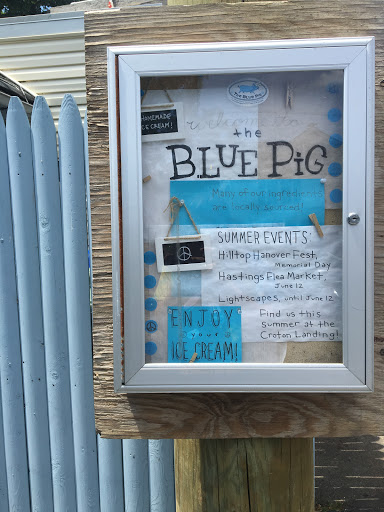 The Blue Pig
HOMEMADE
ICE CREAM!
Welcome to
the
BLUE PiG
Many of our ingredients
are locally sourced!
SUMMER EVENTS:
Hilltop Hanover Fest,
Memorial Day
Hastings Flea Market,
June 12
Lightscapes, until June 12
Find us this
Summer at the
Croton Landing!
ENJOY
your
ICE CREAM!